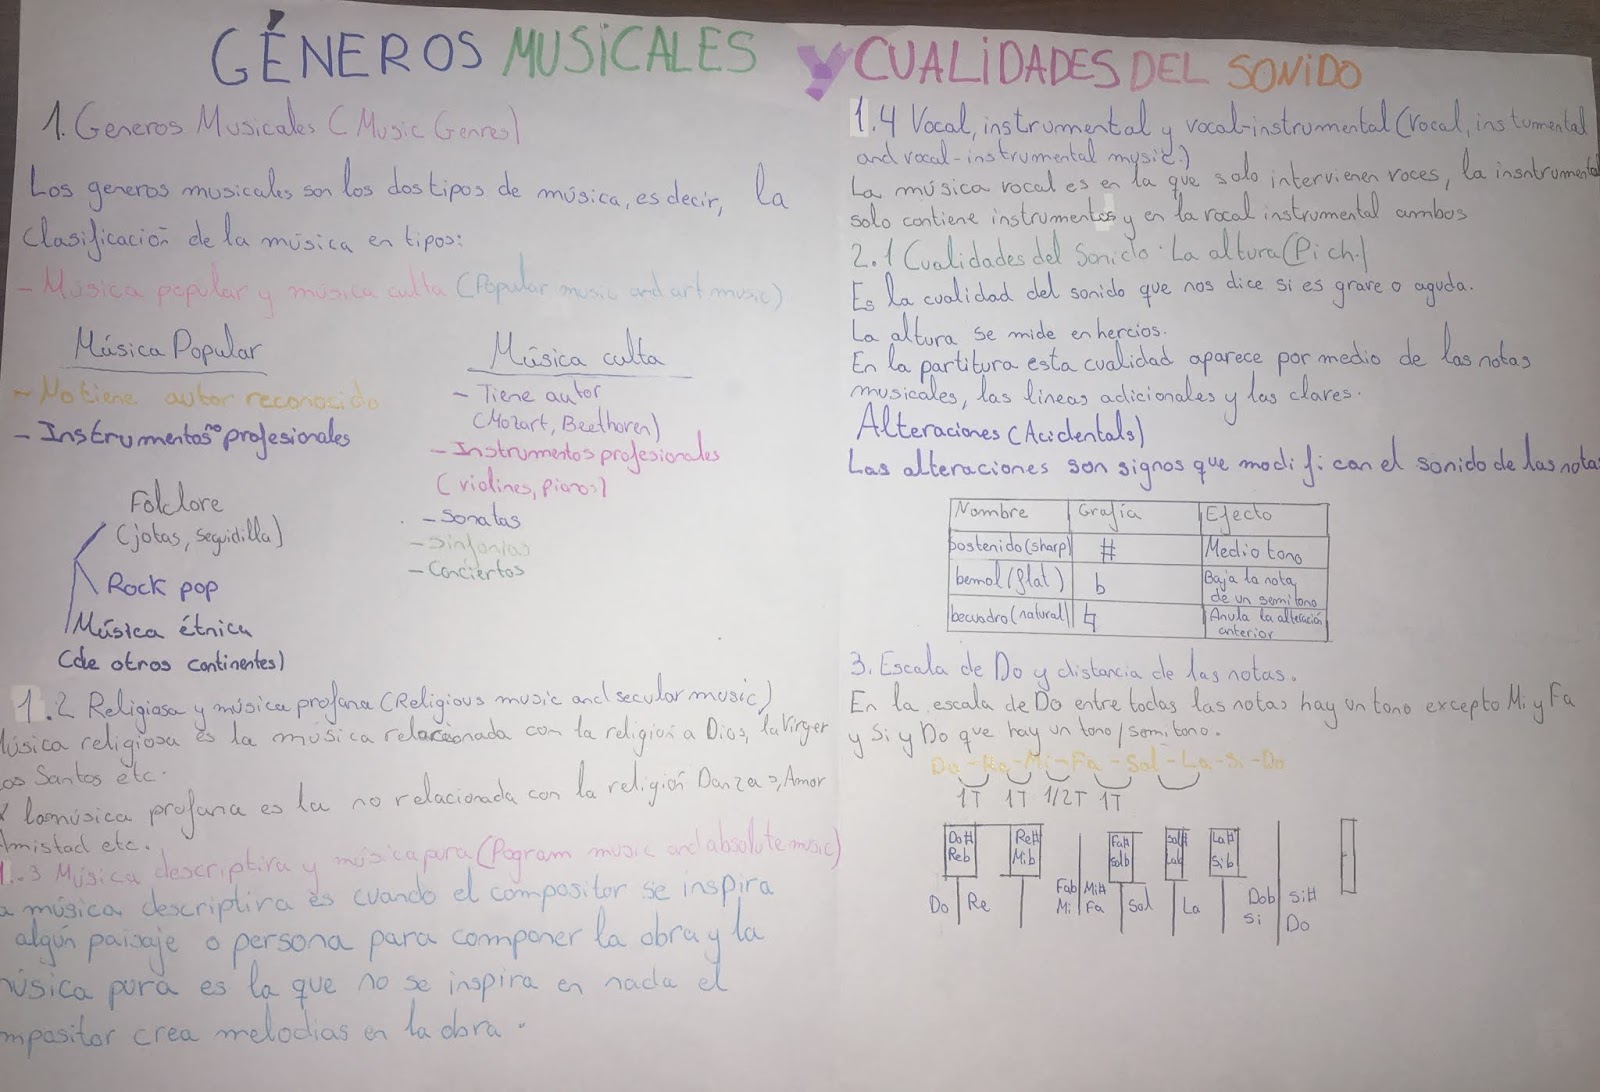 GÉNEROS MUSICALES Y CUALIDADES DEL SONIDO
1. Generos Musicales (Music Genres)
Los generos musicales son los dos tipos de música, es decir, la
clasificación de la música en tipos:
- Música popular y música culta (Popular music and art music)
Música Popular
- No tiene autor reconocido
- Instrumentos no profesionales
Folclore
(jotas, seguidilla)
Rock pop
Música étnica
(de otros continentes)
Música culta
- Tiene autor
(Mozart, Beethoven)
- Instrumentos profesionales
(violines, pianos)
- Sonatas
- Sinfonías
- Conciertos
1.2 Religiosa y música profana (Religious music and secular music)
música religiosa es la música relacionada con la religión a Dios, la Virgen
los Santos etc.
Y la música profana es la no relacionada con la religión Danzas, Amor
Amistad etc.
1.3 Música descriptiva y música pura (Pogram music and absolute music)
a música descriptiva es cuando el compositor se inspira
algún paisaje o persona para componer la obra y la
música pura es la que no se inspira en nada el
mpositor crea melodias en la obra.
1.4 Vocal, instrumental y vocal-instrumental (Vocal, instumental
and vocal-instrumental music.)
La música vocal es en la que solo intervienen voces, la insntrumental
solo contiene instrumentos y en la vocal instrumental ambos
2.1 Cualidades del Sonido: La altura (Pich.)
Es la cualidad del sonido que nos dice si es grave o aguda.
La altura se mide en hercios.
En la partitura esta cualidad aparece por medio de las notas
musicales, las lineas adicionales y las claves.
Alteraciones (Acidentals)
Las alteraciones son signos que modifican el sonido de las notas
Nombre Grafía Efecto
sostenido (sharp) # Medio tono
bemol (flat) b Baja la nota
de un semitono
becuadro (natural) ♮ Anula la alteración
anterior
3. Escala de Do y distancia de las notas.
En la escala de Do entre todas las notas hay un tono excepto Mi y Fa
y Si y Do que hay un tono/semitono.
Do - Re - Mi - Fa - Sol - La - Si - Do
1T 1T 1/2T 1T
Do# Re# Fa# Sol# La#
Reb Mib Solb Lab Sib
Fab Mi# Dob Si#
Do Re Mi Fa Sol La Si Do